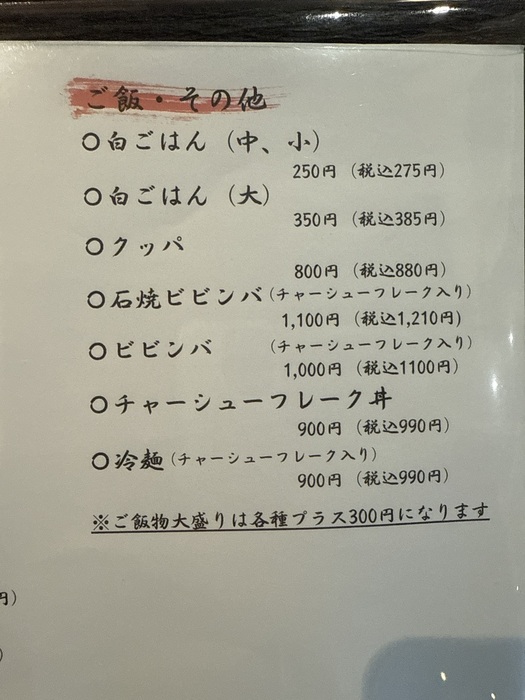 ご飯・その他
○白ごはん（中、小）
250円（税込275円）
○白ごはん（大）
350円（税込385円）
○クッパ
800円（税込880円）
○石焼ビビンバ（チャーシューフレーク入り）
1,100円（税込1,210円）
○ビビンバ （チャーシューフレーク入り）
1,000円（税込1100円）
○チャーシューフレーク丼
900円（税込990円）
○冷麺（チャーシューフレーク入り）
900円（税込990円）
※ご飯物大盛りは各種プラス300円になります
円）
）